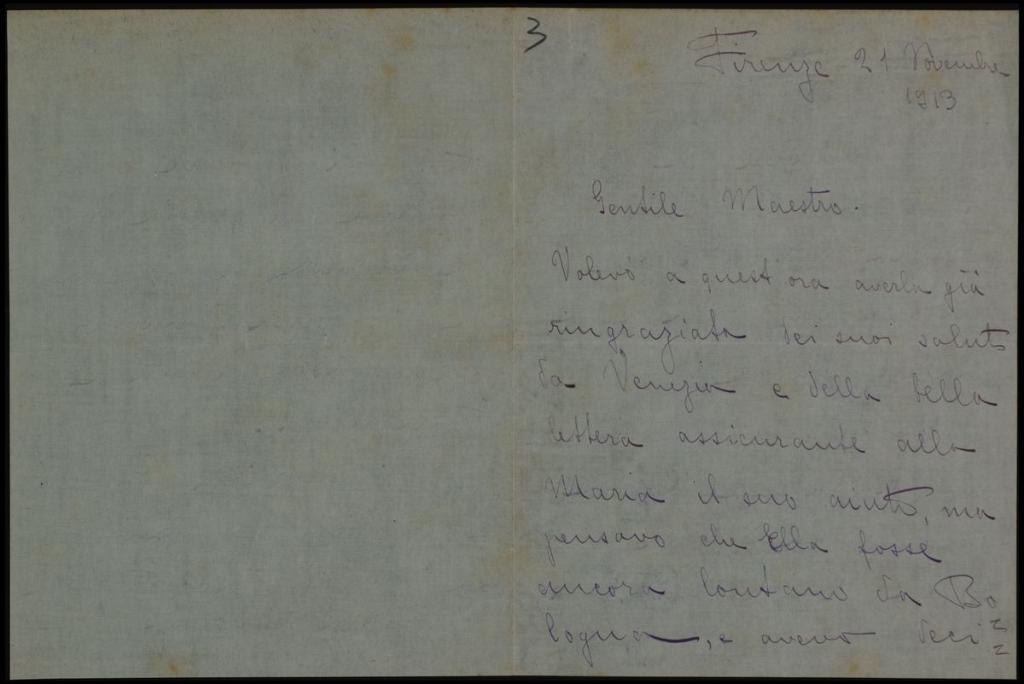 3
Firenze 21 Novembre
1913
Gentile Maestro.
Volevo a quest'ora averla già
ringraziata dei suoi saluti
da Venezia e della bella
lettera assicurante alla
Maria il suo aiuto, ma
pensavo che Ella fosse
ancora lontano da Bo=
logna, e avevo deci=